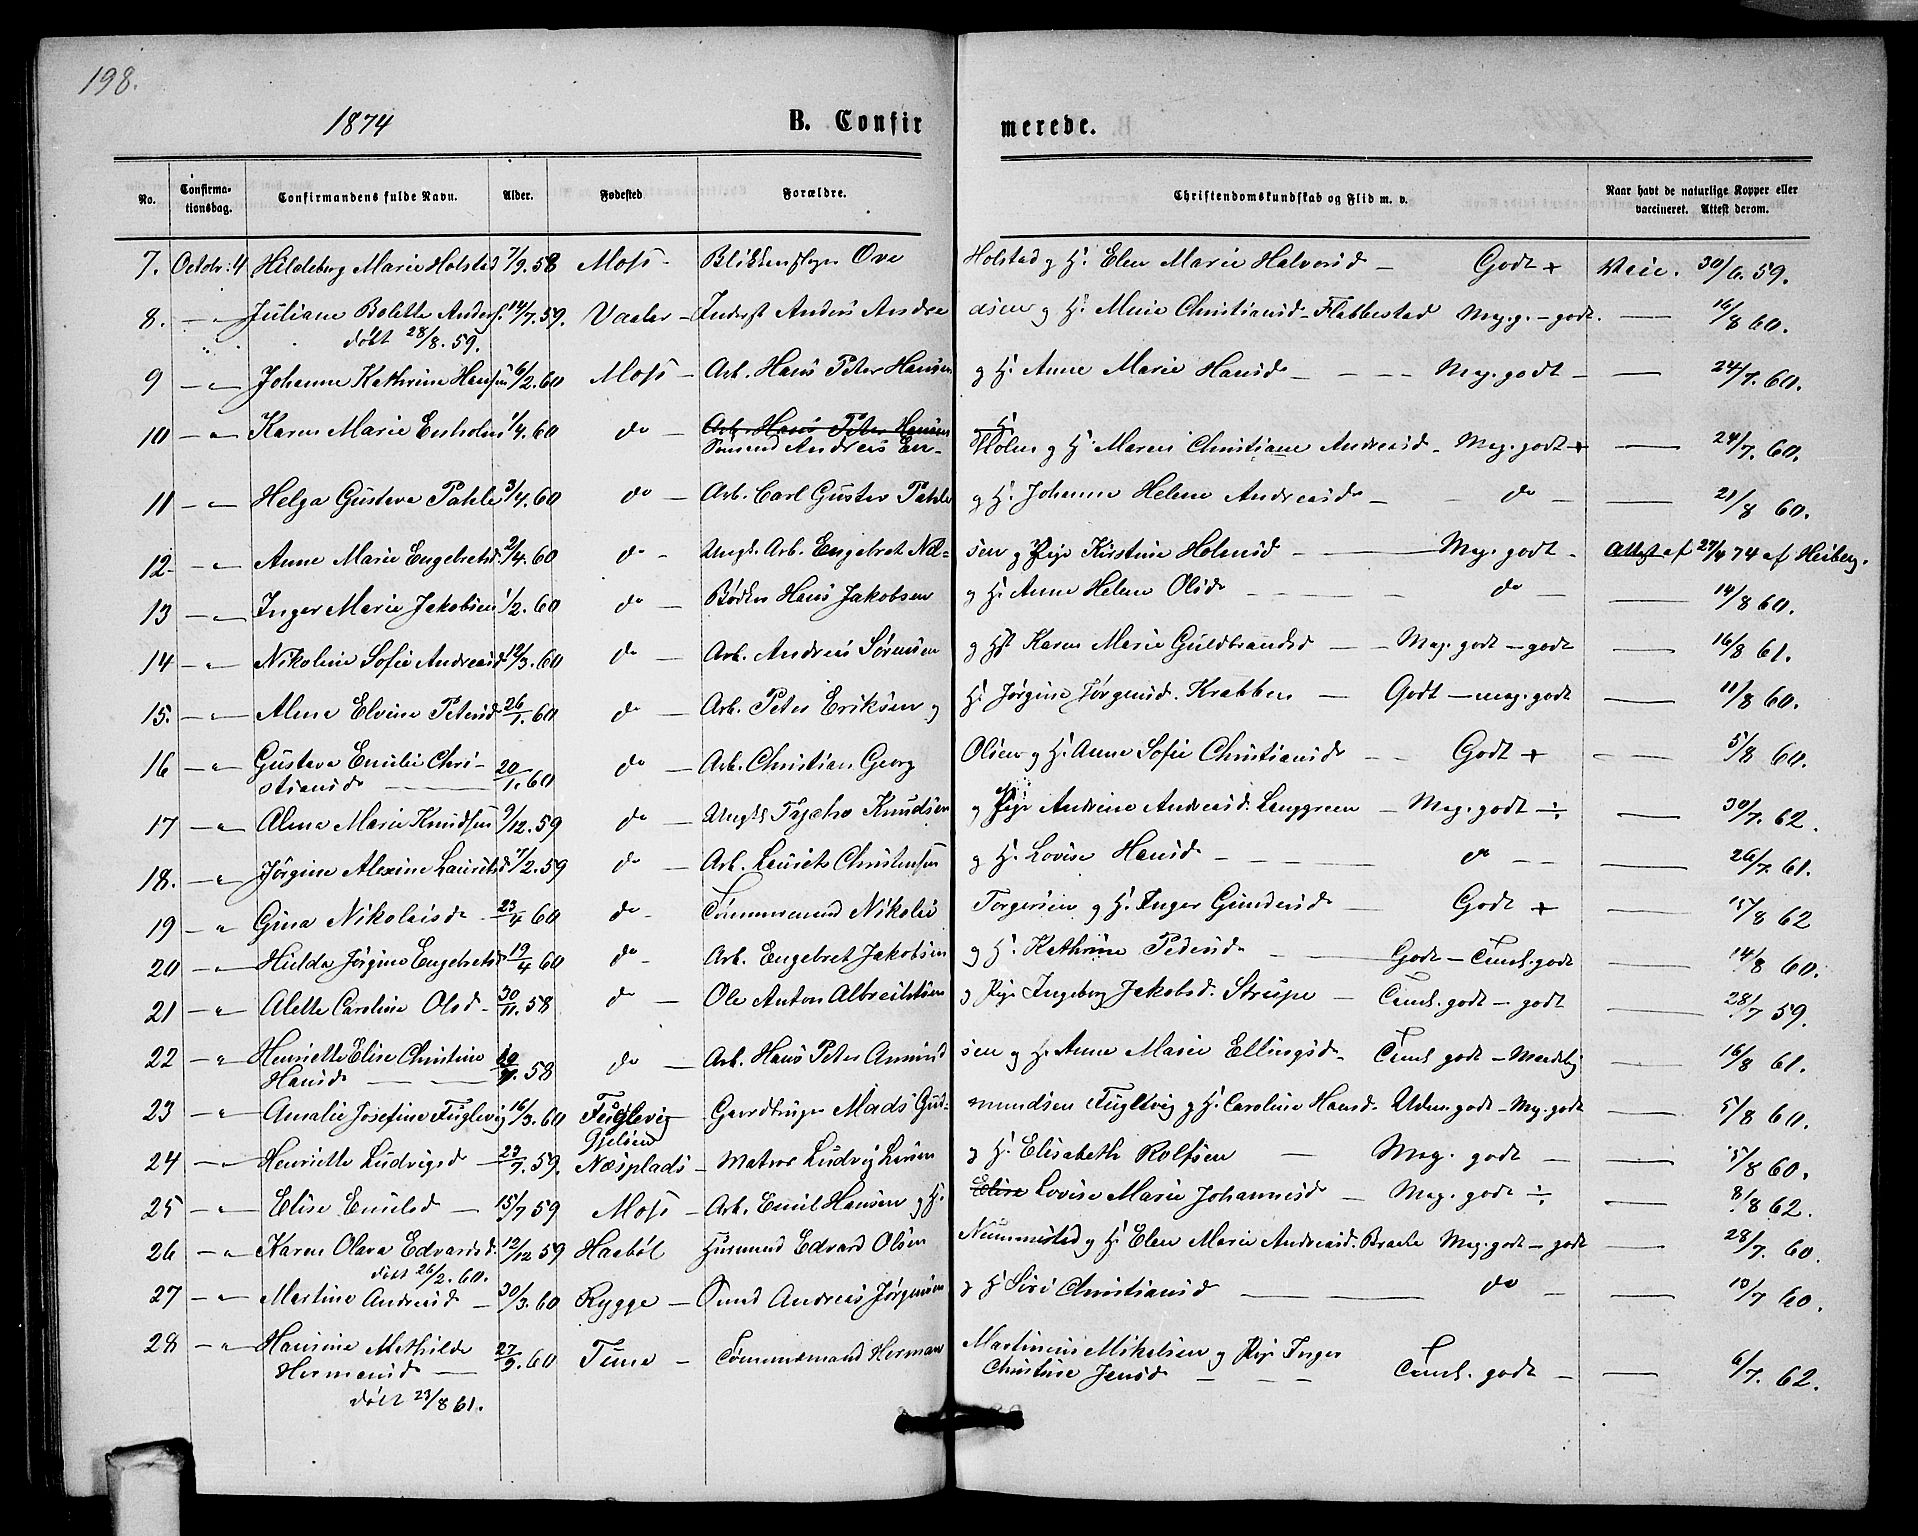 198.
1874
B. Confirmerede.
No. Confirmationsdag. Confirmandens fulde Navn. Alder. Fødested Forældre. Christendomskundskab og Flid m. v. Naar havt de naturlige Kopper eller vaccineret. Attest derom.
7. Octobr: 4 Hildeborg Marie Holstad 7/9.58 Moss - Blikkenslager Ove Holstad og H. Elen Marie Halvorsd - Godt + Vacc. 30/6. 59.
8. - " - Juliane Bolette Anders. 14/7.59. Vaaler - Inderst Anders Andreasen og H. Marie Christiansd - Flebbestad Meg. g. - godt. — 16/8 60.
døbt 28/8. 59.
9 - " - Johanne Kathrine Hansen 6/2.60 Moss - Arb. Hans Peter Hansen og H. Anne Marie Hansd - - - Meg. godt - — 24/7. 60.
10 - " - Karen Marie Enholm 1/4.60 do - Arb. Hans Peter Hansen
Sømand Andreas En- Holm og H. Maren Christiane Andreasd - Meg. godt + — 24/7. 60.
11 - " - Helga Gustava Pahle 3/4.60 do - Arb. Carl Gustav Pahle og H. Johanne Helene Andreasd - do - — 21/8 60.
12 - " - Anne Marie Engebretsd 2/4.60 do - Ungk. Arb. Engebret Nilsen og Pige Kirstine Holmsd - Meg. godt - Attest af 27/4 74 af Heiberg.
13 - " - Inger Marie Jakobsen 1/2.60 do - Bødker Hans Jakobsen og H. Anne Helene Olsd - do - — 14/8 60.
14 - " - Nikoline Sofie Andreasd 12/3.60 do - Arb. Andreas Sørensen og H. Karen Marie Guldbrandsd - Meg. godt - godt — 16/8 61.
15. - " - Alma Elvine Petersd 26/1.60 do - Arb. Peter Eriksen og H. Jørgine Jørgensd. Krabben - Godt - meg. godt — 11/8 60.
16 - " - Gustava Emilie Christiansd 20/1.60 do - Arb. Christian Georg Olsen og H. Anne Sofie Christiansd - Godt + — 5/8 60.
17 - " - Alma Marie Knudsen 9/12.59 do - Ungk. Tycho Knudsen og Pige Andrine Andreasd. Lenggreen - Meg. godt ÷ — 30/7. 62.
18. - " - Jørgine Alexine Lauritsd 7/2.59 do - Arb. Laurits Christensen og H. Lovise Hansd - do - — 26/7. 61.
19 - " Gina Nikolaisd - 23/4 60 do - Tømmermand Nikolai Torgersen og H. Inger Gundersd - Godt + — 15/8 62
20 - " Hulda Jørgine Engebretsd 19/4 60 do - Arb. Engebret Jakobsen og H. Kathrine Pedersd - Godt - Teml. godt — 14/8 60.
21 - " - Alette Caroline Olsd - 30/11. 58 do - Ole Anton Albreitsen og Pige Ingeborg Jakobsd. Strupe - Teml. godt - godt — 28/7 59.
22 - " Henriette Elise Christine Hansd 58 do - Arb. Hans Peter Amundsen og H. Anne Marie Ellingsd - Teml. godt - Maadelig — 16/8 61.
23 - " Amalie Josefine Fuglevig 16/3.60 Fuglevig Gaardbruger Mads Gudmundsen Fuglevig og H. Caroline Hansd. Udm. godt - Meg. godt — 5/8 60.
24 - " Henriette Ludvigsd - 23/7.59. Gjelsen Næsplads - Matros Ludvig Larsen og H. Elisabeth Rolfsen - Meg. godt - — 5/8 60.
25 - " - Elise Emilsd - 15/7 59 Moss - Arb. Emil Hansen og H. Elise Lovise Marie Johannesd - Meg. godt ÷ — 8/8 62.
26 - " Karen Olava Edvardsd. 12/12 59 Haabøl Husmand Edvard Olsen Nummestad og H. Elen Marie Andreasd. Braate Meg. godt - godt — 28/7. 60.
døbt 26/2. 60.
27 - " - Martine Andreasd - 30/3.60 Rygge - Smed Andreas Jørgensen og H. Siri Christiansd — do - — 10/7 60.
28 - " - Hansine Mathilde Hermansd - 27/9.60 Tune - Tømmermand Herman Martinius Mikelsen og Pige Inger Christine Jensd - - - Teml. godt - — 6/7. 62.
døbt 23/8 61.